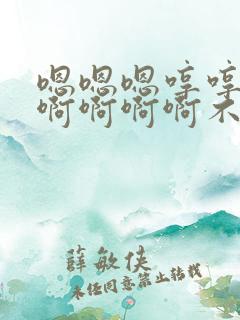 嗯嗯嗯哼哼
啊啊啊啊不
薛敏侠
未经同意禁止转载